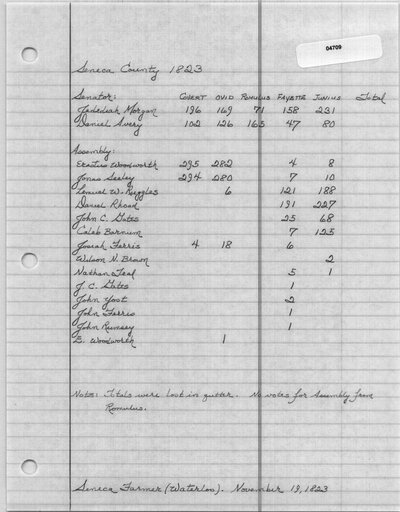 04709
Seneca County 1823
Senator: Covert Ovid Romulus Fayette Junius Total
Jedediah Morgan 196 169 71 158 231
Daniel Avery 102 126 165 47 80
Assembly:
Erastus Woodworth 295 282 4 8
Jonas Seeley 294 280 7 10
Lemuel W. Ruggles 6 121 188
Daniel Rhoad 131 227
John C. Gates 25 68
Caleb Barnum 7 125
Josiah Ferris 4 18 6
Wilson N. Brown 2
Nathan Teal 5 1
J. C. Gates 1
John Yost 2
John Ferris 1
John Rumsey 1
E. Woodworth 1
Note: Totals were lost in gutter. No votes for Assembly from
Romulus.
Seneca Farmer (Waterloo). November 19, 1823